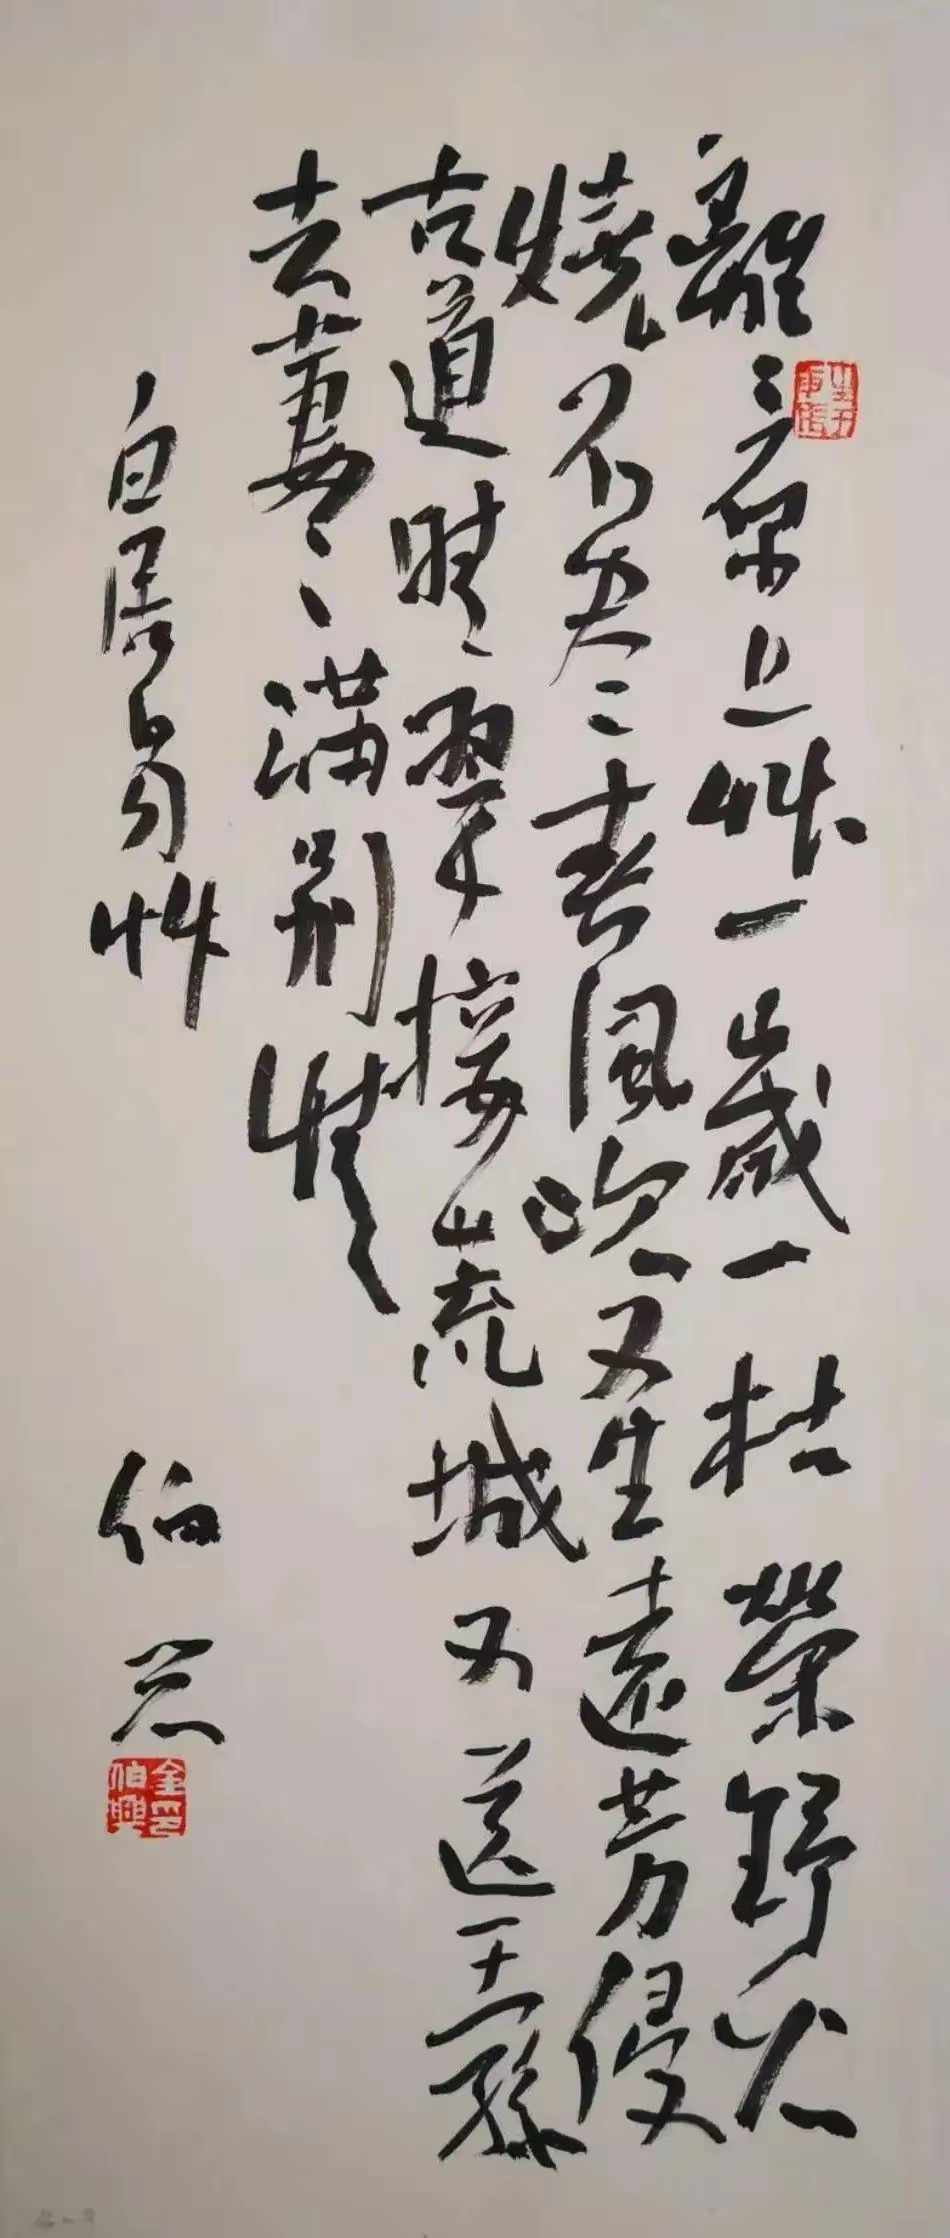 離〻原上艸一歲一枯榮野火
燒不尽春風吹又生遠芳侵
古道晴翠接荒城又送王孫
去萋〻滿別情
白居易艸
伯兴
金伯興印